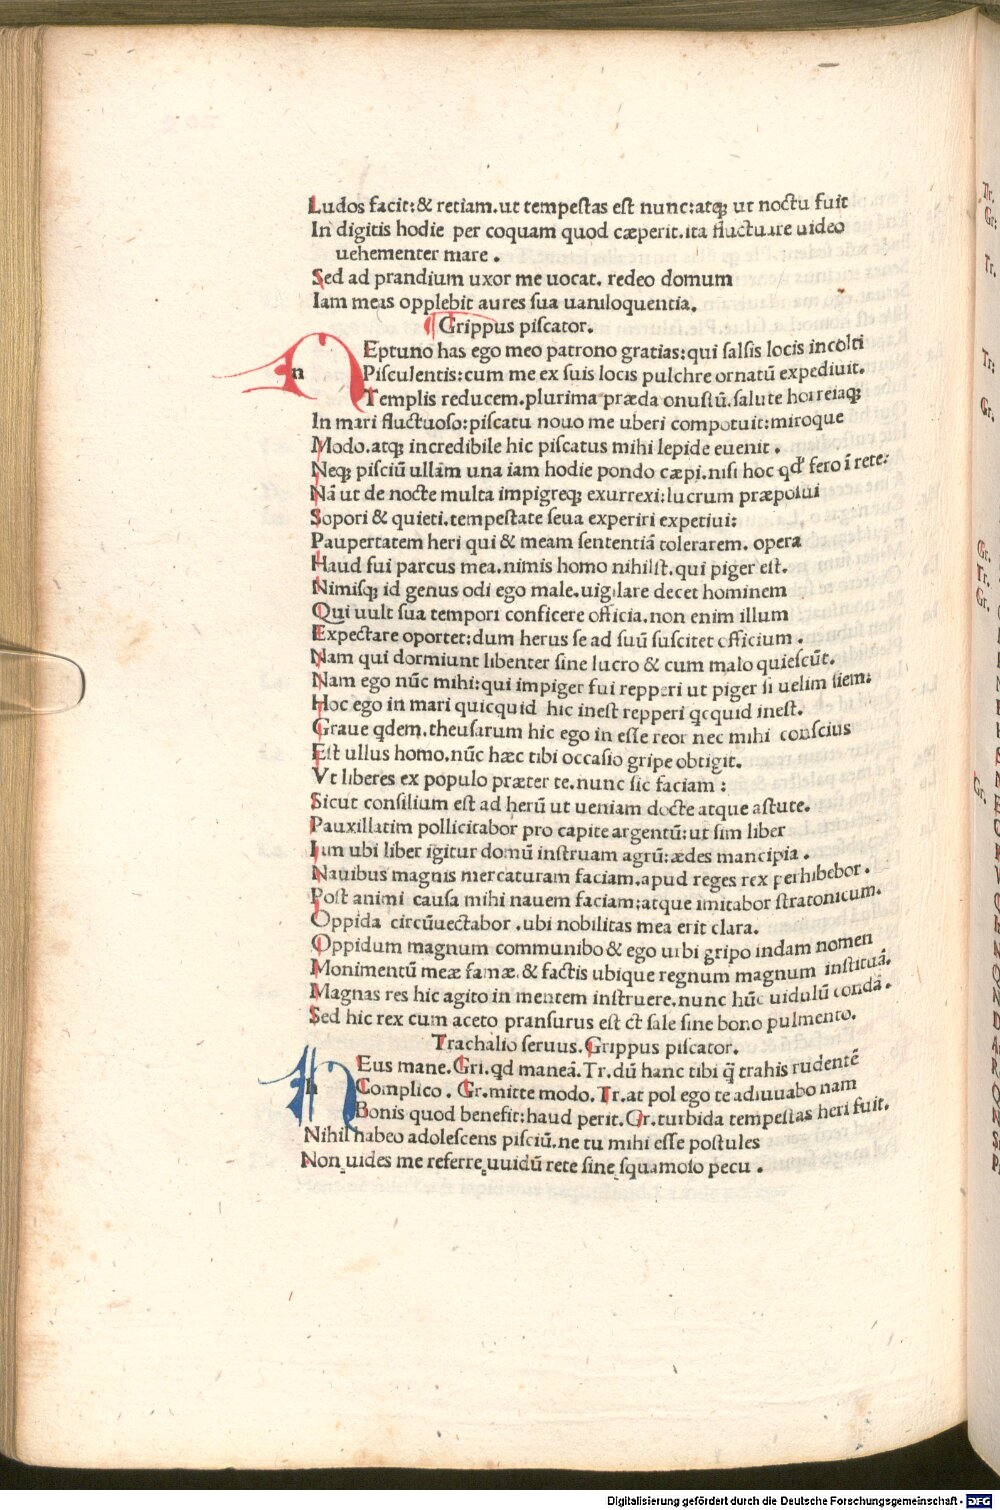 Ludos facit:& retiam.ut tempestas est nunc:atq; ut noctu fuit
In digitis hodie per coquam quod cæperit.ita fluctuare uideo
uehementer mare .
Sed ad prandium uxor me uocat. redeo domum
Iam meas opplebit aures sua uaniloquentia.
Grippus piscator.
n Eptuno has ego meo patrono gratias:qui salsis locis incolti
Pisculentis:cum me ex suis locis pulchre ornatū expediuit.
Templis reducem.plurima præda onustū.salute horreiaq;
In mari fluctuoso:piscatu nouo me uberi compotuit:miroque
Modo.atq; incredibile hic piscatus mihi lepide euenit .
Neq; pisciū ullam una iam hodie pondo cæpi.nisi hoc qd fero ī rete:
Nā ut de nocte multa impigreq; exurrexi:lucrum præposui
Sopori & quieti.tempestate seua experiri expetiui:
Paupertatem heri qui & meam sententiā tolerarem. opera
Haud fui parcus mea.nimis homo nihilst.qui piger est.
Nimisq; id genus odi ego male.uigilare decet hominem
Qui uult sua tempori conficere officia.non enim illum
Expectare oportet:dum herus se ad suū suscitet officium .
Nam qui dormiunt libenter sine lucro & cum malo quiescūt.
Nam ego nūc mihi:qui impiger fui repperi ut piger si uelim siem:
Hoc ego in mari quicquid hic inest repperi qcquid inest.
Graue qdem.theusarum hic ego in esse reor nec mihi conscius
Est ullus homo.nūc hæc tibi occasio gripe obtigit.
Vt liberes ex populo præter te.nunc sic faciam :
Sicut consilium est ad herū ut ueniam docte atque astute.
Pauxillatim pollicitabor pro capite argentū:ut sim liber
Iam ubi liber igitur domū instruam agrū:ædes mancipia .
Nauibus magnis mercaturam faciam.apud reges rex perhibebor .
Post animi causa mihi nauem faciam:atque imitabor stratonicum.
Oppida circūuectabor .ubi nobilitas mea erit clara.
Oppidum magnum communibo & ego urbi gripo indam nomen
Monimentū meæ famæ.& factis ubique regnum magnum instituā.
Magnas res hic agito in mentem instruere.nunc hūc uidulū condā.
Sed hic rex cum aceto pransurus est ct sale sine bono pulmento.
Trachalio seruus. Grippus piscator.
h Eus mane. Gri.qd maneā.Tr.dū hanc tibi q̄ trahis rudentē
Complico . Gr.mitte modo. Tr.at pol ego te adiuuabo nam
Bonis quod benefit:haud perit.Gr.turbida tempestas heri fuit.
Nihil habeo adolescens pisciū.ne tu mihi esse postules
Non uides me referre uuidū rete sine squamoso pecu .
Tr.
Gr:
Tr.
Tr:
Gr.
Gr.
Tr.
Gr.
Gr.
Digitalisierung gefördert durch die Deutsche Forschungsgemeinschaft - DFG